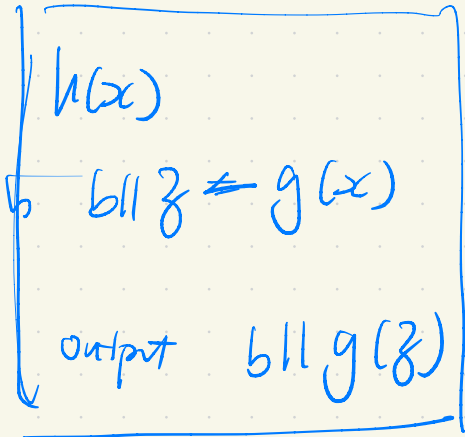 h(x)
b b||z ← g(x)
output b||g(z)